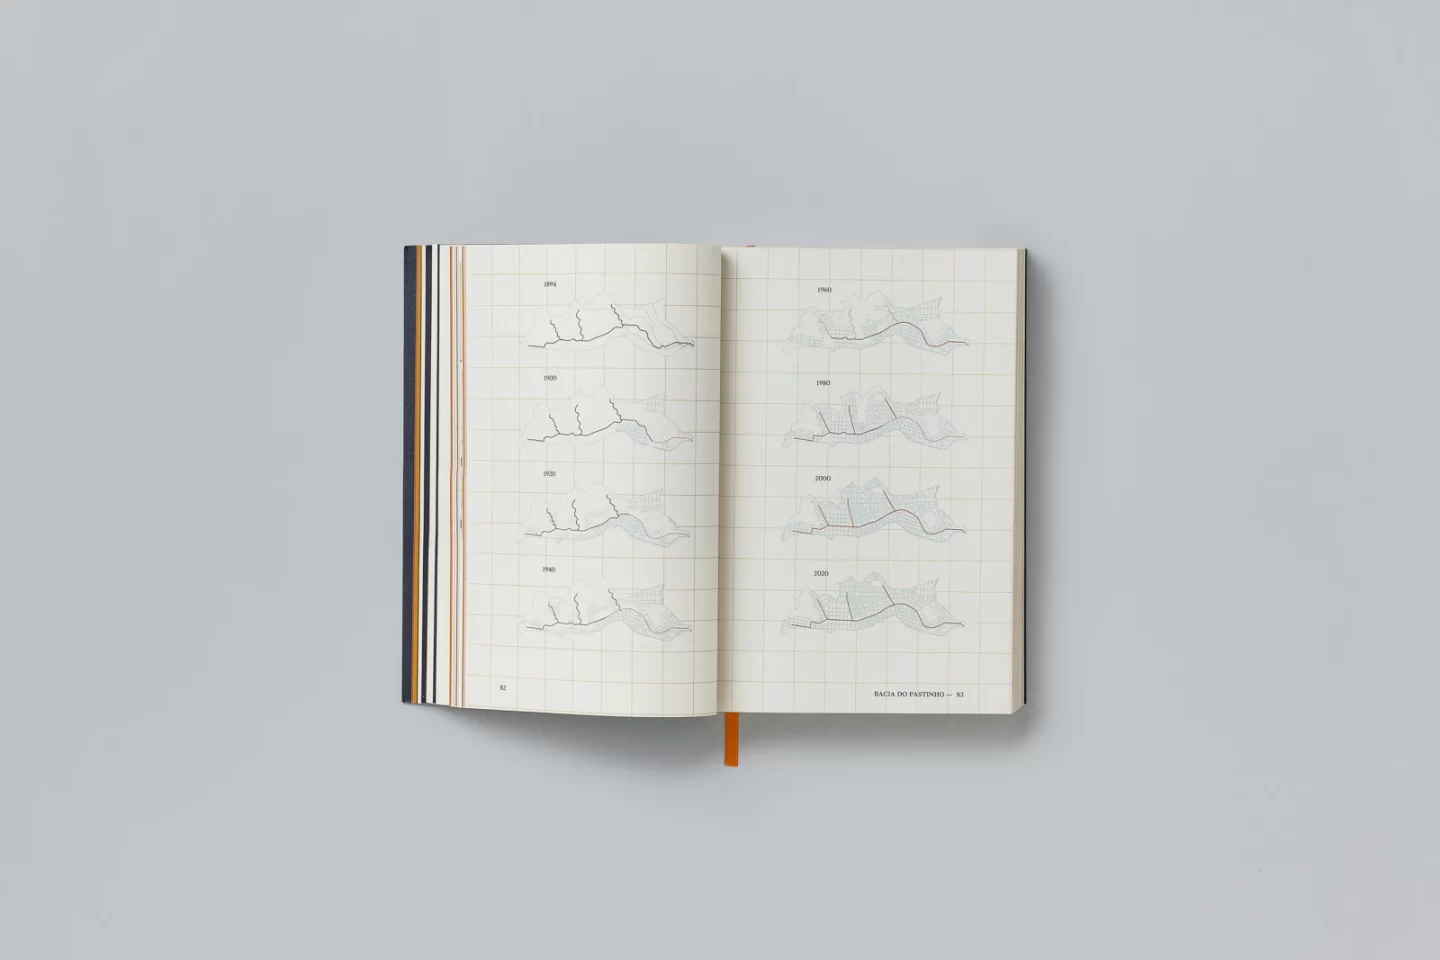 1894
1900
1920
1940
82
1960
1980
2000
2020
BACIA DO PASTINHO — 83